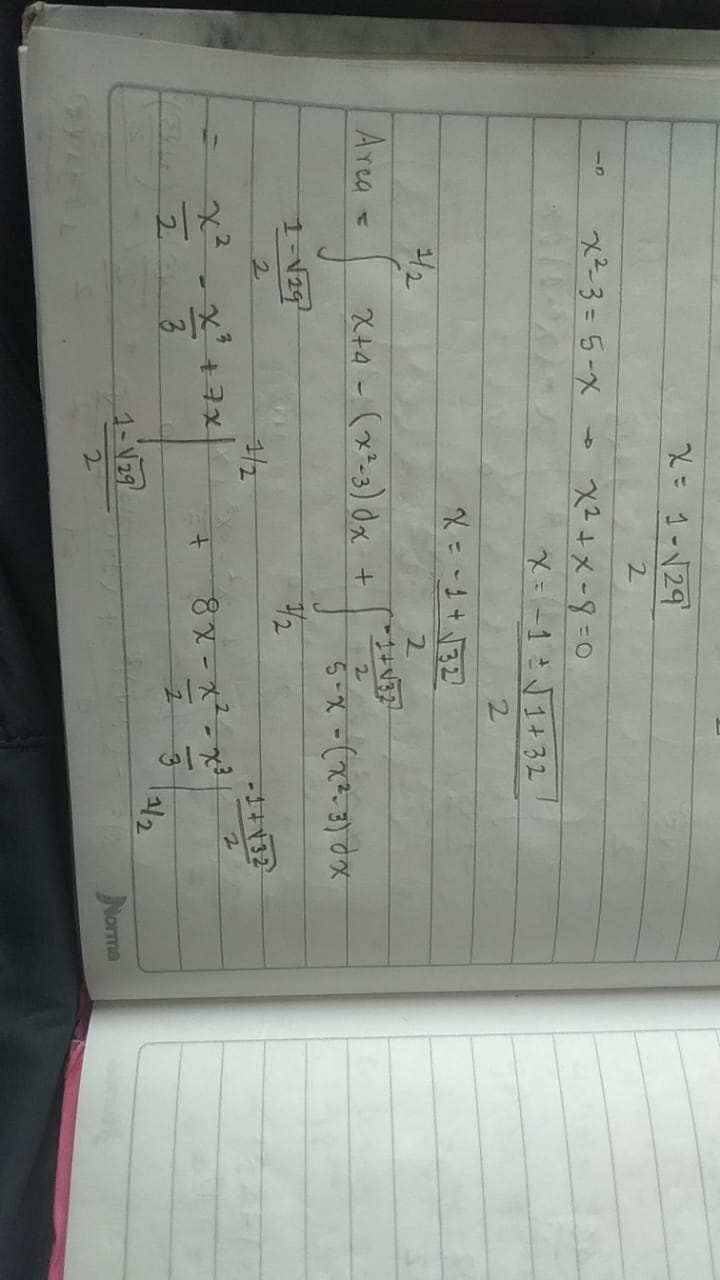 x = 1-√29 / 2
→ x² - 3 = 5 - x → x² + x - 8 = 0
x = -1 ± √1+32 / 2
x = -1 + √32 / 2
Area = ∫_{1-√29 / 2}^{1/2} x+4 - (x²-3) dx + ∫_{1/2}^{-1+√32 / 2} 5-x - (x²-3) dx
= x²/2 - x³/3 + 7x |_{1-√29 / 2}^{1/2} + 8x - x²/2 - x³/3 |_{1/2}^{-1+√32 / 2}
Norma